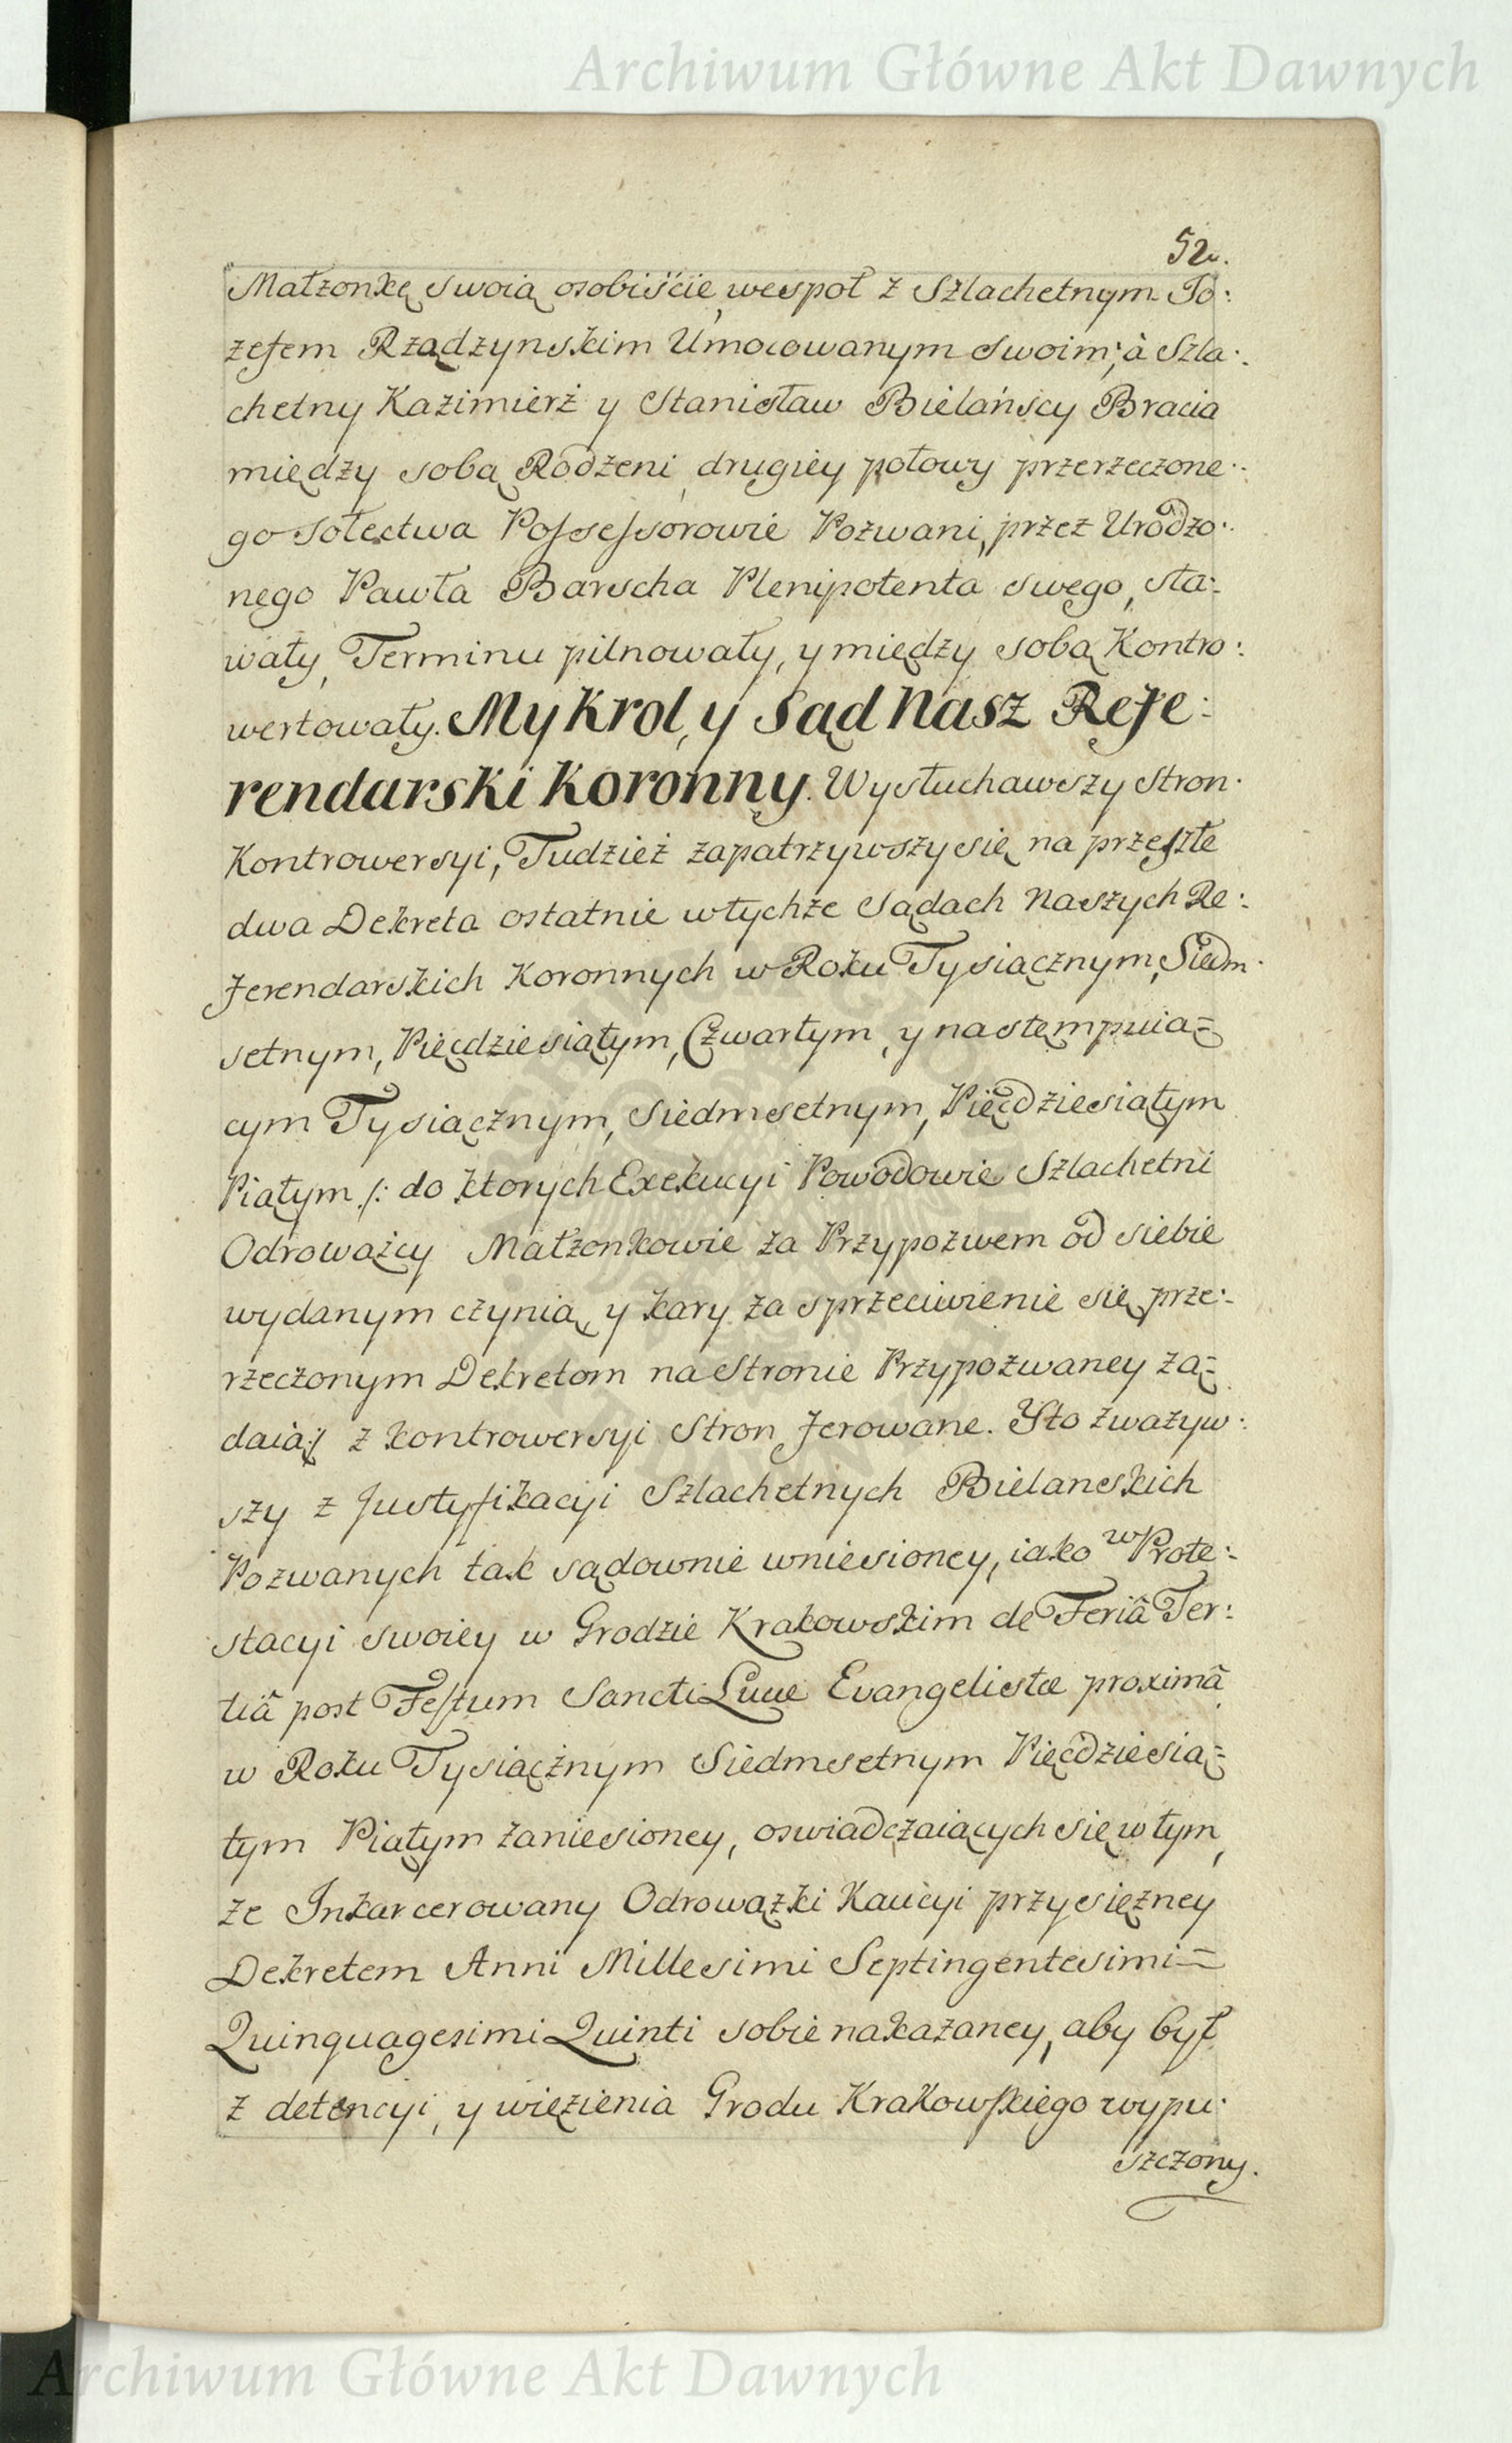 Archiwum Główne Akt Dawnych
52.
Małżonkę swoią osobiście, wespoł z Szlachetnym Jo:
zefem Rządzynskim Umocowanym swoim; à Szla:
chetny Kazimierż y Stanisław Bielańscy Bracia
między sobą Rodżeni, drugiey połowy przerzeczone:
go Sołectwa Possessorowie Pozwani, przez Urodzo:
nego Pawła Barscha Plenipotenta swego, sta:
wały, Terminu pilnowały, y między sobą Kontro:
wertowały. My Krol, y Sąd Nasz Refe:
rendarski Koronny. Wysłuchawszy Stron
Kontrowersyi, Tudzież zapatrzywszy się na przeszłe
dwa Dekreta ostatnie w tychże Sądach Naszych Re:
ferendarskich Koronnych w Roku Tysiącznym, Siedm
setnym, Pięcdziesiątym, Czwartym, y nastempuią=
cym Tysiącznym, Siedmsetnym, Pięcdziesiątym
Piątym /: do ktorych Exekucyi Powodowie Szlachetni
Odrowążcy Małżonkowie za Przypozwem od siebie
wydanym czynią, y kary za sprzeciwienie się prze:
rzeczonym Dekretom na Stronie Przypozwaney żą=
daią :/ z kontrowersyi Stron ferowane. Y to zważyw:
szy z Justyfikacyi Szlachetnych Bielanskich
Pozwanych tak sądownie wniesioney, iako w Prote:
stacyi swoiey w Grodzie Krakowskim de Feriâ Ter:
tiâ post Festum Sancti Lucæ Evangelistæ proximâ
w Roku Tysiącżnym Siedmsetnym Pięcdziesią=
tym Piątym zaniesioney, oswiadczaiących się w tym,
że Inkarcerowany Odrowązki Kaucyi przysięzney
Dekretem Anni Millesimi Septingentesimi=
Quinquagesimi Quinti sobie nakazaney, aby był
z detencyi, y więzienia Grodu Krakowskiego wypu:
szczony.
Archiwum Główne Akt Dawnych